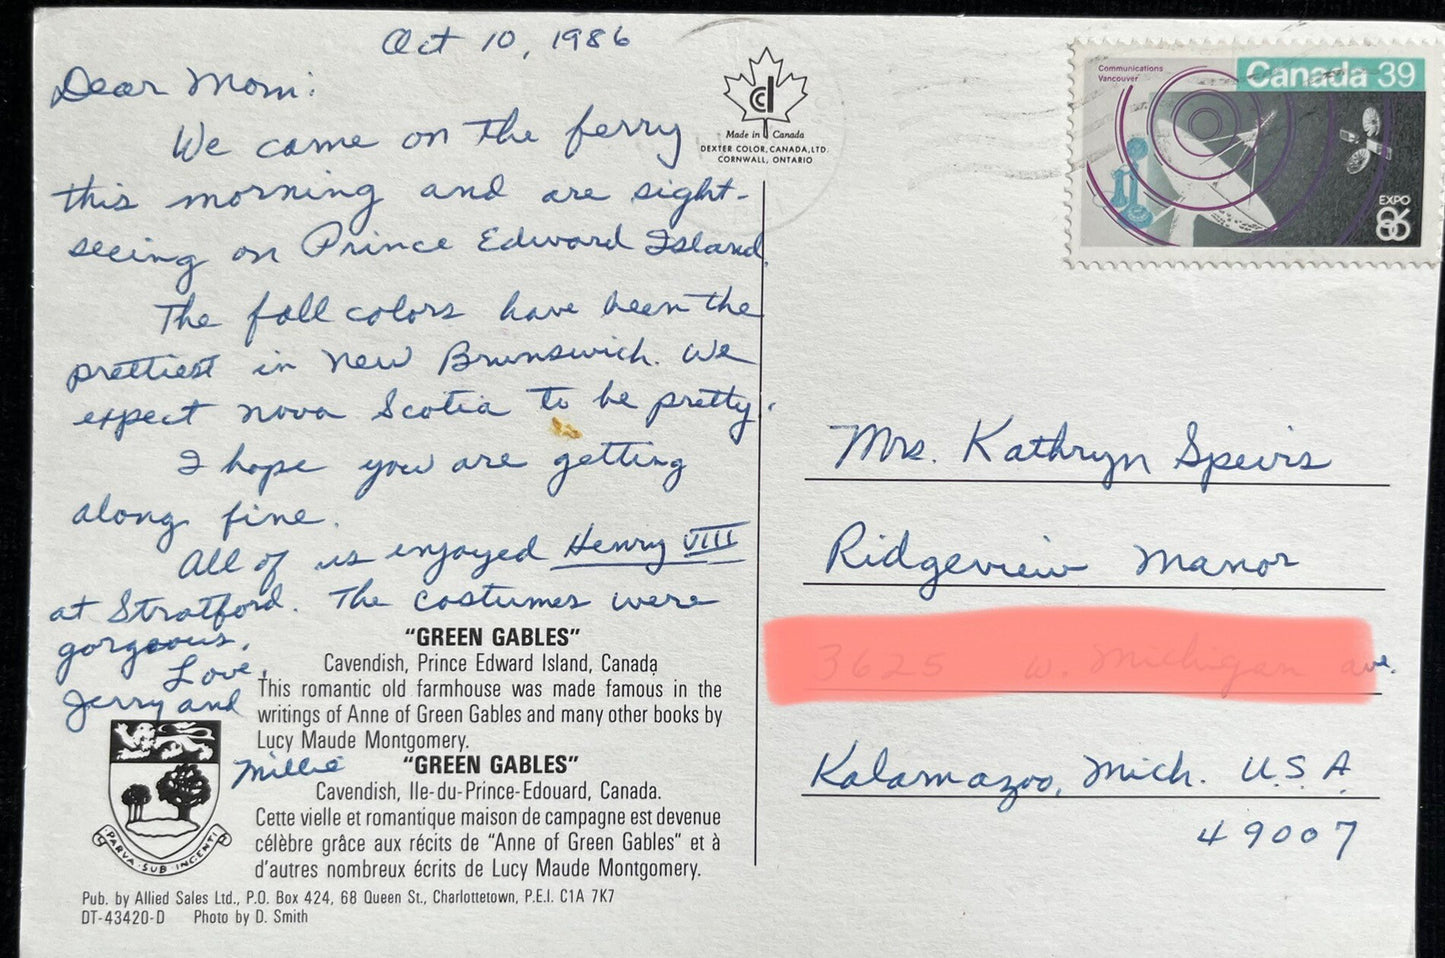 Oct 10, 1986
Dear Mom:
We came on the ferry
this morning and are sight-
seeing on Prince Edward Island.
The fall colors have been the
prettiest in New Brunswick. We
expect Nova Scotia to be pretty.
I hope you are getting
along fine.
All of us enjoyed Henry VIII
at Stratford. The costumes were
gorgeous.
Love,
Jerry and
Millie
"GREEN GABLES"
Cavendish, Prince Edward Island, Canada
This romantic old farmhouse was made famous in the
writings of Anne of Green Gables and many other books by
Lucy Maude Montgomery.
"GREEN GABLES"
Cavendish, Ile-du-Prince-Edouard, Canada.
Cette vielle et romantique maison de campagne est devenue
célèbre grâce aux récits de "Anne of Green Gables" et à
d'autres nombreux écrits de Lucy Maude Montgomery.
PARVA·SUB·INGENTI
Pub. by Allied Sales Ltd., P.O. Box 424, 68 Queen St., Charlottetown, P.E.I. C1A 7K7
DT-43420-D Photo by D. Smith
cd
Made in Canada
DEXTER COLOR, CANADA, LTD.
CORNWALL, ONTARIO
Communications
Vancouver
Canada 39
EXPO
86
Mrs. Kathryn Speirs
Ridgeview Manor
ave.
Kalamazoo, Mich. U.S.A
49007